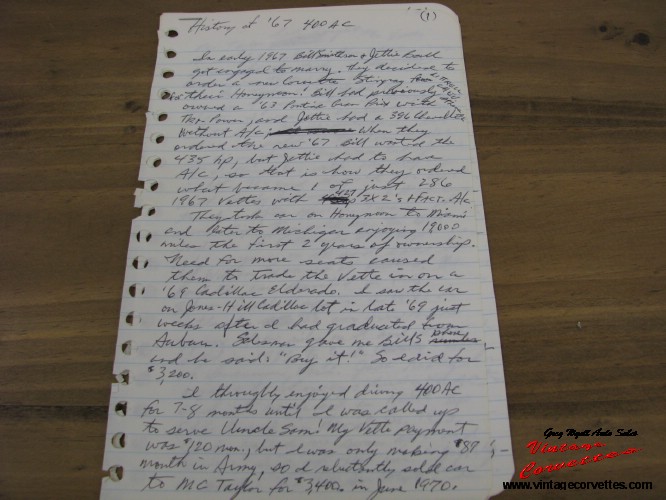 (1)
History of '67 400 AC
In early 1967 Bill & Jettie
got engaged to marry. They decided to
order a new Corvette Stingray
their Honeymoon! Bill had previously
owned a '63 Pontiac Gran Prix with
Power, and Jettie had a 396 Chevelle
without A/c; When they
ordered the new '67 Bill wanted the
435 hp, but Jettie had to have
A/C, so that is how they ordered
what became 1 of just 286
1967 Vettes with 427 3X2's & Fact. A/c.
They took car on Honymoon to Miami
and later to Michigan enjoying 19000
miles the first 2 years of ownership.
Need for more seats caused
them to trade the Vette in on a
'69 Cadillac Eldorado. I saw the car
on Jones-Hill Cadillac lot in late '69 just
weeks after I had graduated from
Auburn. Salesman gave me Bill's phone number
and he said: "Buy it!" So I did for
$3,200.
I throughly enjoyed driving 400AC
for 7-8 months until I was called up
to serve Uncle Sam! My Vette payment
was $120 mon., but I was only making $87
month in Army, so I reluctently sold car
to MC Taylor for $3,400. in June 1970.
Greg Wyatt Auto Sales
Vintage
Corvettes
www.vintagecorvettes.com